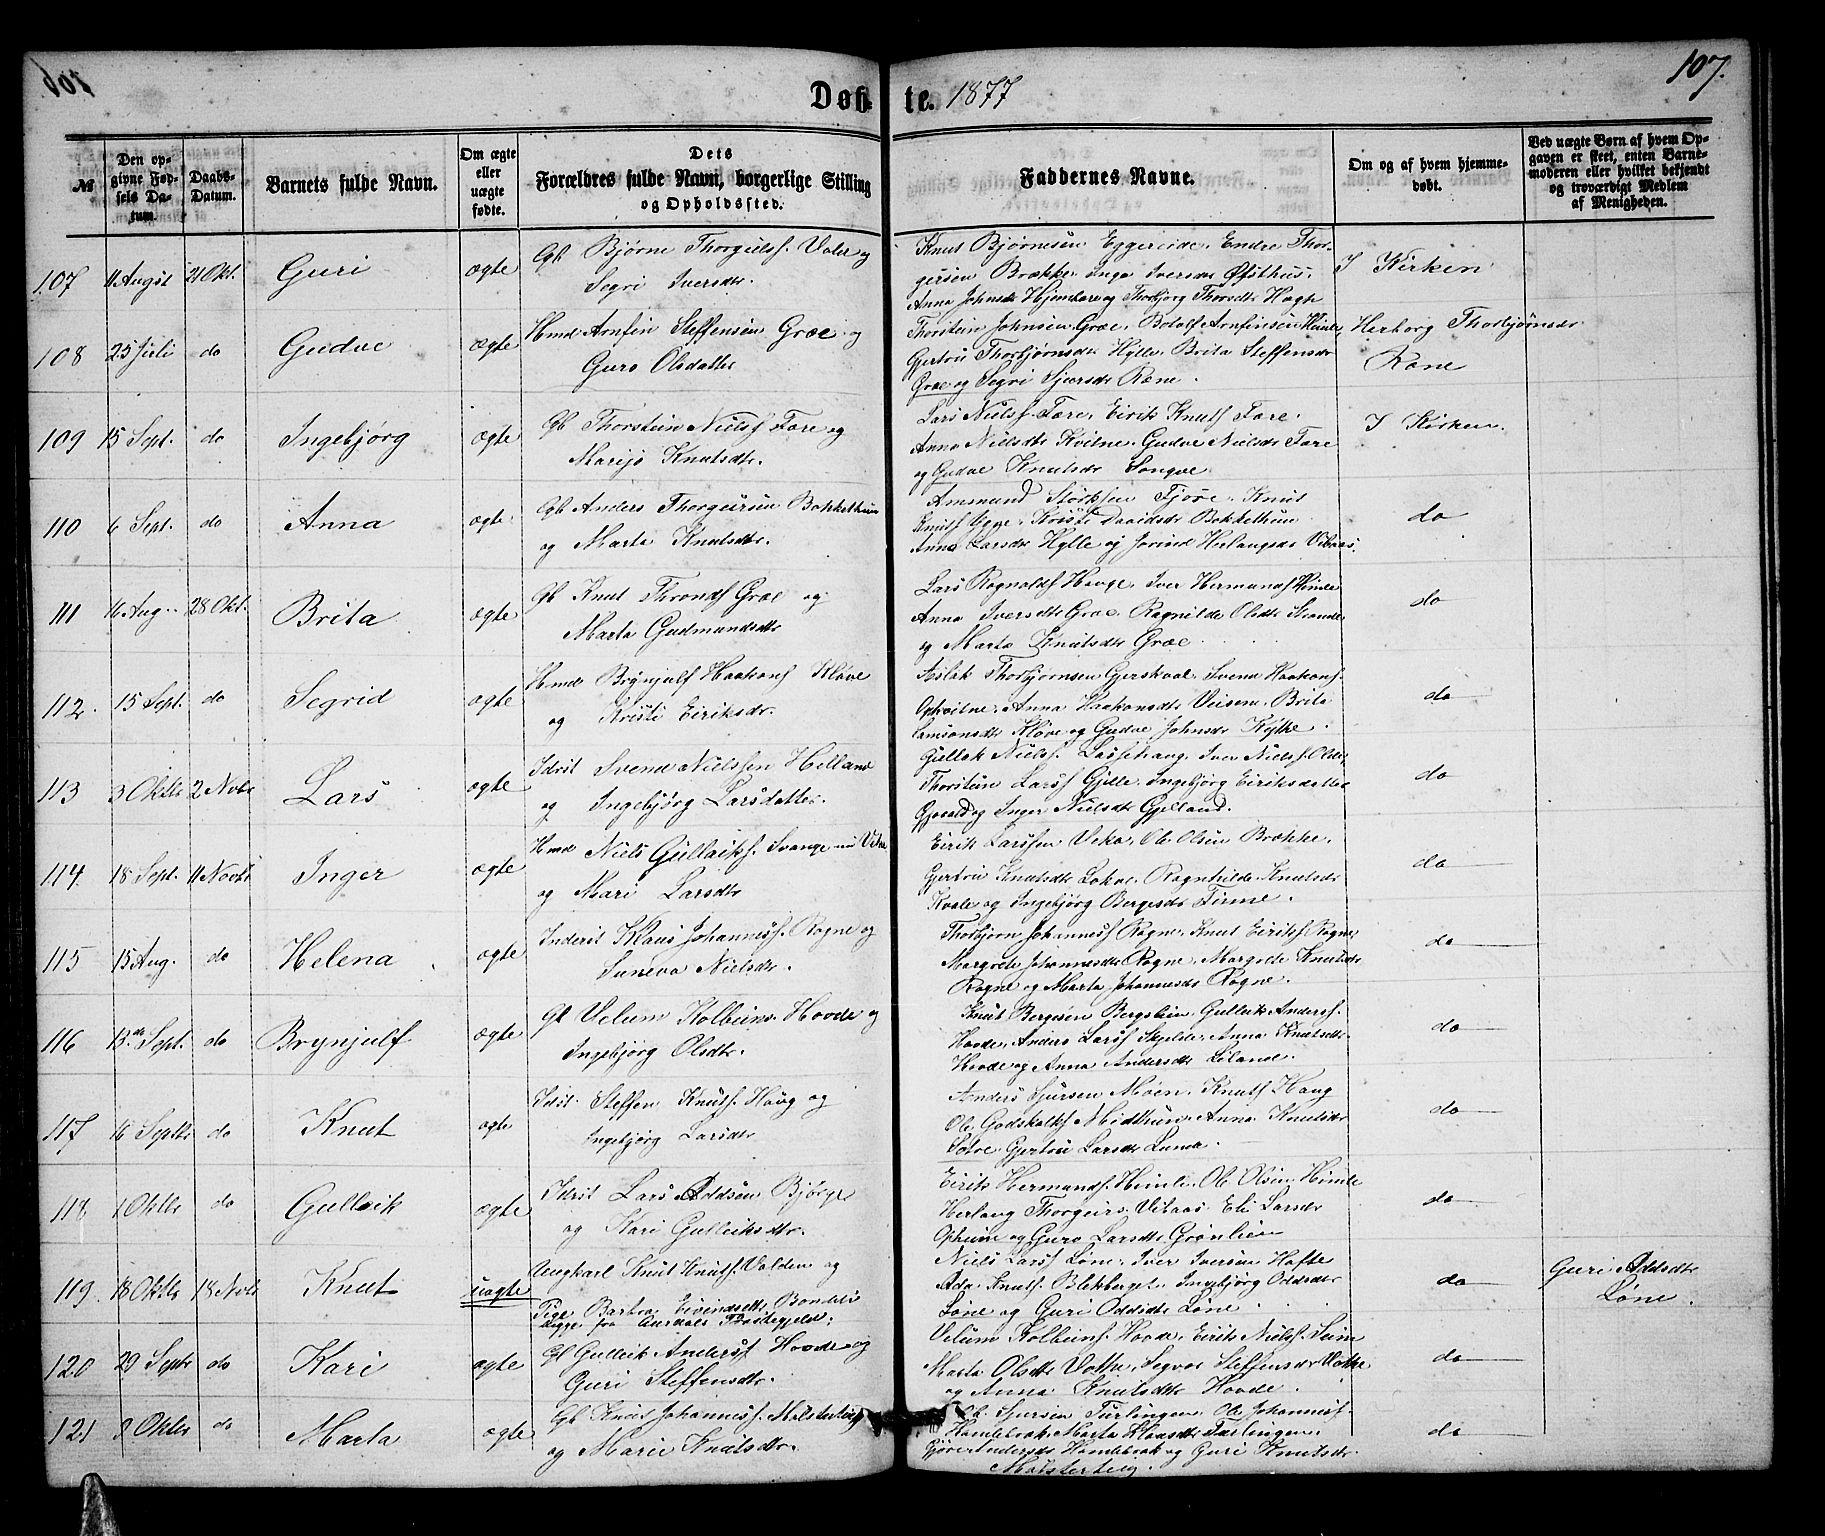 107.
Døb- te. 1877
№
Den opgivne Fødsels Datum.
Daabs-Datum.
Barnets fulde Navn.
Om ægte eller uægte fødte.
Dets Forældres fulde Navn, borgerlige Stilling og Opholdssted.
Faddernes Navne.
Om og af hvem hjemmedøbt.
Ved uægte Børn af hvem Opgaven er skeet, enten Barnemoderen eller hvilket bekjendt og troværdigt Medlem af Menigheden.
107 11 Augst 21 Okt. Guri ægte Gb Bjørne Thorgulsf. Valer og
Segri Iversdtr.
Knut Bjørnesen Eggereide, Endre Thor-
gersen Brække, Inga Iversdtr Østhus,
Anna Johnsdtr Hjemtare og Thorbjørg Thorsdtr Hagte
I Kirken
108 25 Juli do Gudve ægte Hmd Arnfin Steffensen Græe og
Guro Olsdatter
Thorstein Johnsen Græe, Botolf Arnfinsen Himle,
Gjertru Thorbjørnsdtr Hylle, Brita Steffensdr
Græe og Segri Sjursdr Rene.
Herborg Thorbjørnsdr
Rene
109 15 Sept. do Ingebjørg ægte Gb Thorstein Nielsf Fære og
Marijo Knutsdtr.
Lars Nielsf. Fære, Eirik Knutsf Fære.
Anna Nielsdtr Kvitne, Gudve Nielsdr Fære
og Gudve Knutsdr Songve
I Kirken.
110 6 Sept. do Anna ægte Gb Anders Thorgeirsen Bokkethun
og Marta Knutsdtr.
Ammund Størksen Tjøre, Knut
Knutsf Ygre, Kristi Davidsdr Bokkethun
Anna Larsdr Hylle og Jorind Herlangsdr Vibaas.
do
111 16 Aug. 28 Okt. Brita ægte Gb Knut Thronds Græe og
Marta Gudmundsdtr
Lars Ragnaldsf Hauge, Iver Hermundsf Himle
Anna Iversdtr Græe, Ragnilde Olsdtr Strande
og Marta Knutsdtr Græe
do
112. 15 Sept. do Segrid ægte Hmd Brynjulf Haakonsf Kløve
og Kristi Eiriksdr.
Aslak Thorbjørnsen Gjerskval, Svend Haakonsf.
Opkvitne, Anna Haakonsdtr Veisen, Brita
Samsonsdtr Kløve og Gudve Johnsdr Kytke.
do
113 3 Oktbr 2 Novbr Lars ægte Idrst Svend Nielssen Helland
og Ingebjørg Larsdatter.
Gullak Nielsf. Lassehaug, Iver Nielsf Olde,
Thorstein Larsf Gjelle, Ingebjørg Eiriksdatter
Gjerald og Inger Nielsdtr Gjelland.
do
114. 18 Sept. 11 Novbr Inger ægte Hmd Niels Gullaiksf. Svange
og Mari Larsdtr
Eirik Larsen Veka, Ole Olsen Brække,
Gjertru Knutsdtr Lokve, Ragnhilde Knutsdr
Kvale og Ingebjørg Bergesdr Finne.
do
115 15 Aug. do Helena ægte Inderst Klaus Johannesf. Rogne og
Suneva Nielsdtr.
Thorbjørn Johannesf Rogne, Knut Eiriksf Rogne,
Margrete Johannesdtr Rogne, Margrete Knutsdr
Rogne og Marta Johannesdr Rogne.
do
116 13de Sept. do Brynjulf ægte Gb Velum Kolbeins. Hovde og
Ingebjørg Olsdtr.
Knut Bergesen Bergslien, Gullek Andersf.
Hovde, Anders Larsf Skjelde, Anna Knutsdtr.
Hovde og Anna Andersdtr Løland.
do
117 16 Septbr do Knut ægte Idrst. Steffen Knutsf. Haug og
Ingebjørg Larsdtr
Anders Sjursen Møen, Knutsf. Haug
Ole Godskalksf Midthun, Anna Knutsdtr
Sotve, Gjertru Larsdtr Lunde.
do
118 1 Oktbr do Gulleik ægte Idrst Lars Oddsen Bjørge
og Kari Gulleiksdtr.
Eirik Hermundsf. Himle, Ole Olsen Himle
Herlang Thorgeirs. Vibaas Eli Larsdr
Opheim og Guro Larsdtr Grønlien
do
119 18 Oktbr 18 Novbr Knut uægte Ungkarl Knut Knutsf. Valden og
Pige Barbra Eivindsdtr Bondelid
begge fra Aurdals Præstegjeld.
Niels Larsf Løne, Iver Iversen Hæfte
Knutsf. Blekberget, Ingebjørg Oddsdtr
Løne og Guri Oddsdtr Løne.
do
Guri Oddsdtr
Løne.
120 29 Septbr do Kari ægte Gb Gulleik Andersf Hovde og
Guri Steffensdtr.
Velum Kolbeinsf. Hovde, Eirik Nielsf. Seim
Marta Olsdtr Væthe, Segvor Steffensdr Væthe
og Anna Knutsdtr Hovde.
do
121 9 Oktbr do Marta ægte Gb Knut Johannesf. Mølsterteig
og Marie Knutsdtr.
Ole Sjursen Turlingen, Ole Johannesf.
Hamlebrek, Marta Klaasdtr Tærlingen,
Gjøre Andersdr Hamlebrek og Guri Knutsdr
Mølsterteig.
do